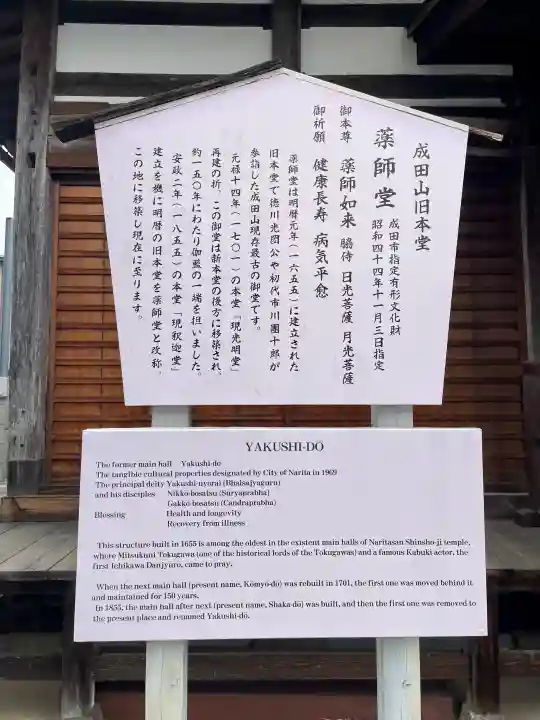 成田山旧本堂
薬師堂
成田市指定有形文化財
昭和四十四年十一月三日指定
御本尊 薬師如来 脇侍 日光菩薩 月光菩薩
御祈願 健康長寿 病気平癒
薬師堂は明暦元年(一六五五)に建立された
旧本堂で徳川光圀公や初代市川團十郎が
参詣した成田山現存最古の御堂です。
元禄十四年(一七〇一)の本堂「現光明堂」
再建の折、この御堂は新本堂の後方に移築され、
約一五〇年にわたり伽藍の一端を担いました。
安政二年(一八五五)の本堂「現釈迦堂」
建立を機に明暦の旧本堂を薬師堂と改称、
この地に移築し現在に至ります。
YAKUSHI-DŌ
The former main hall Yakushi-do
The tangible cultural properties designated by City of Narita in 1969
The principal deity Yakushi-nyorai (Bhaisajyaguru)
and his disciples Nikkō-bosatsu (Suryaprabha)
Gakkō-bosatsu (Candraprabha)
Blessing Health and longevity
Recovery from illness
This structure built in 1655 is among the oldest in the existent main halls of Naritasan Shinsho-ji temple,
where Mitsukuni Tokugawa (one of the historical lords of the Tokugawas) and a famous Kabuki actor, the
first Ichikawa Danjyuro, came to pray.
When the next main hall (present name, Kōmyō-dō) was rebuilt in 1701, the first one was moved behind it
and maintained for 150 years.
In 1855, the main hall after next (present name, Shaka-dō) was built, and then the first one was removed to
the present place and renamed Yakushi-dō.